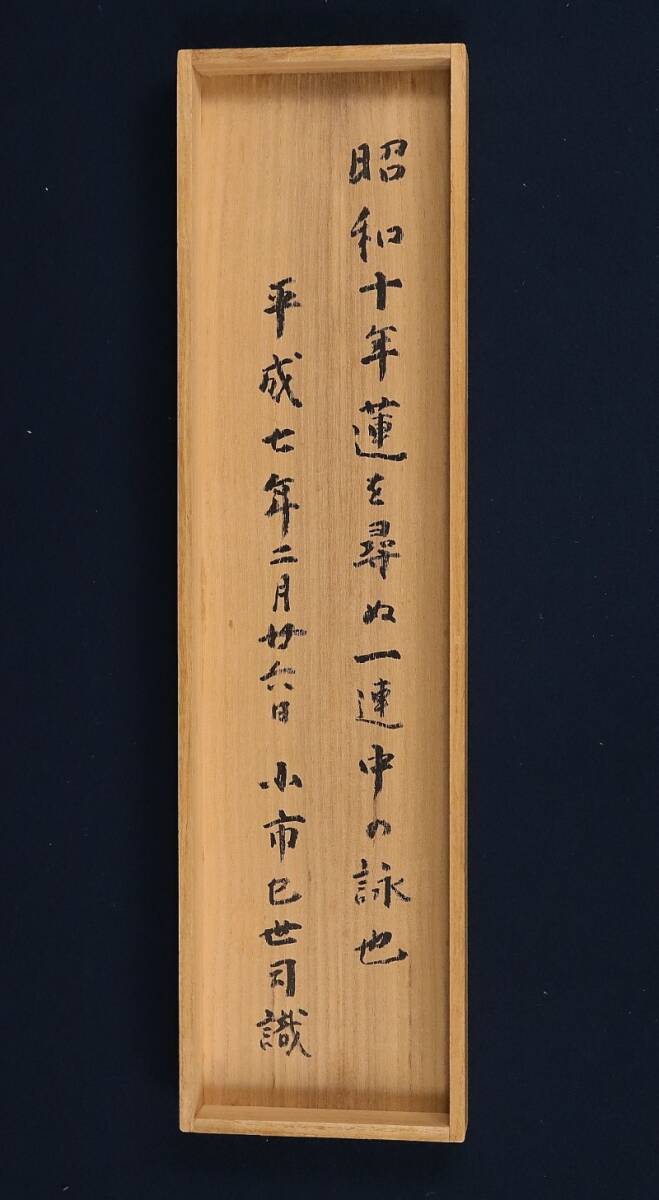 昭和十年蓮を尋ぬ一連中の詠也
平成七年二月廿六日 小市巳世司識